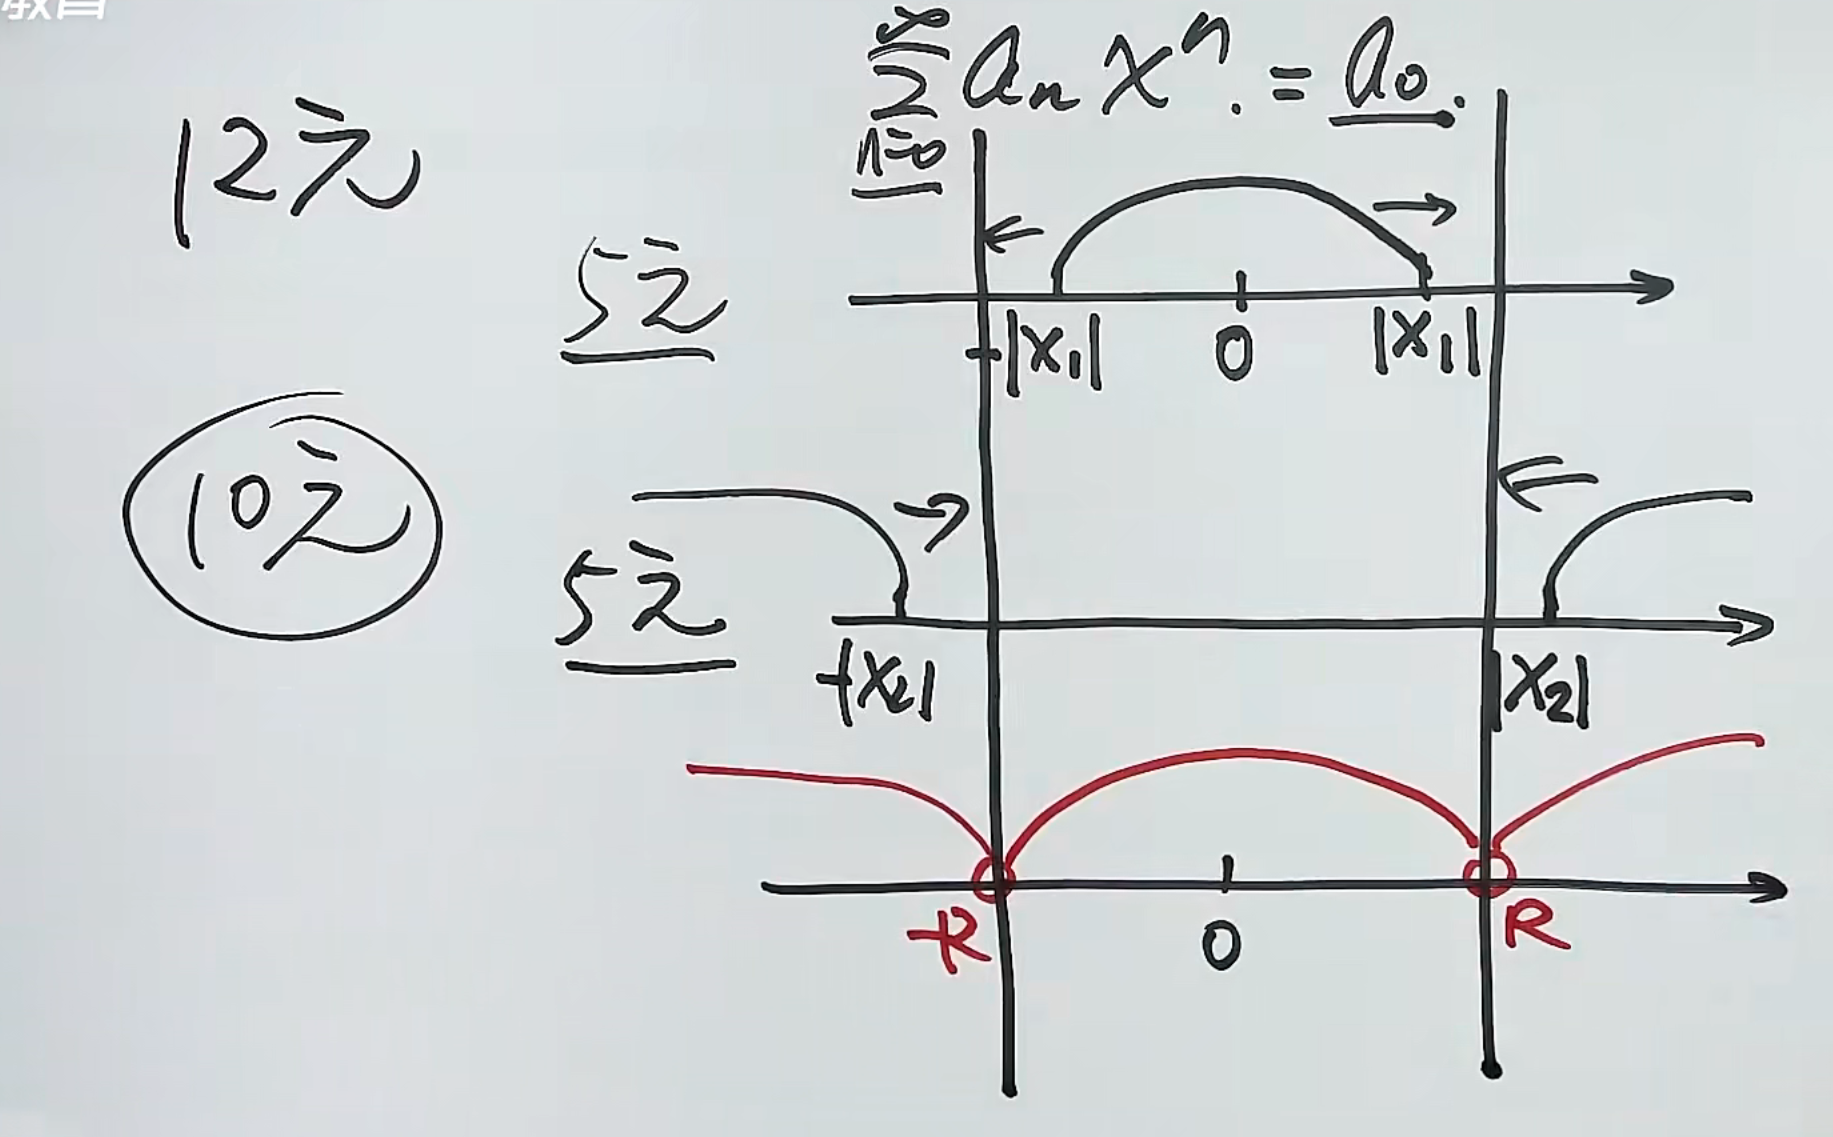 教育
∞
∑ aₙ xⁿ. = a₀.
n=0
12元
5元
-|x₁| 0 |x₁|
10元
5元
-|x₂| |x₂|
-R 0 R